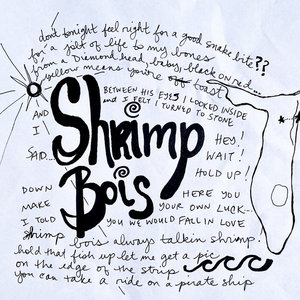 don't tonight feel right for a good snake bite??
for a jolt of life to my bones
from a Diamond head, baby, black on red...
yellow means you're off toast
BETWEEN HIS EYES I LOOKED INSIDE
AND I FELT I TURNED TO STONE
AND
I
SAID...
Shrimp
Bois
HEY!
WAIT!
HOLD UP!
DOWN HERE YOU
MAKE YOUR OWN LUCK...
I TOLD YOU WE WOULD FALL IN LOVE
shrimp bois always talkin shrimp.
hold that fish up let me get a pic
on the edge of the strip
you can take a ride on a pirate ship